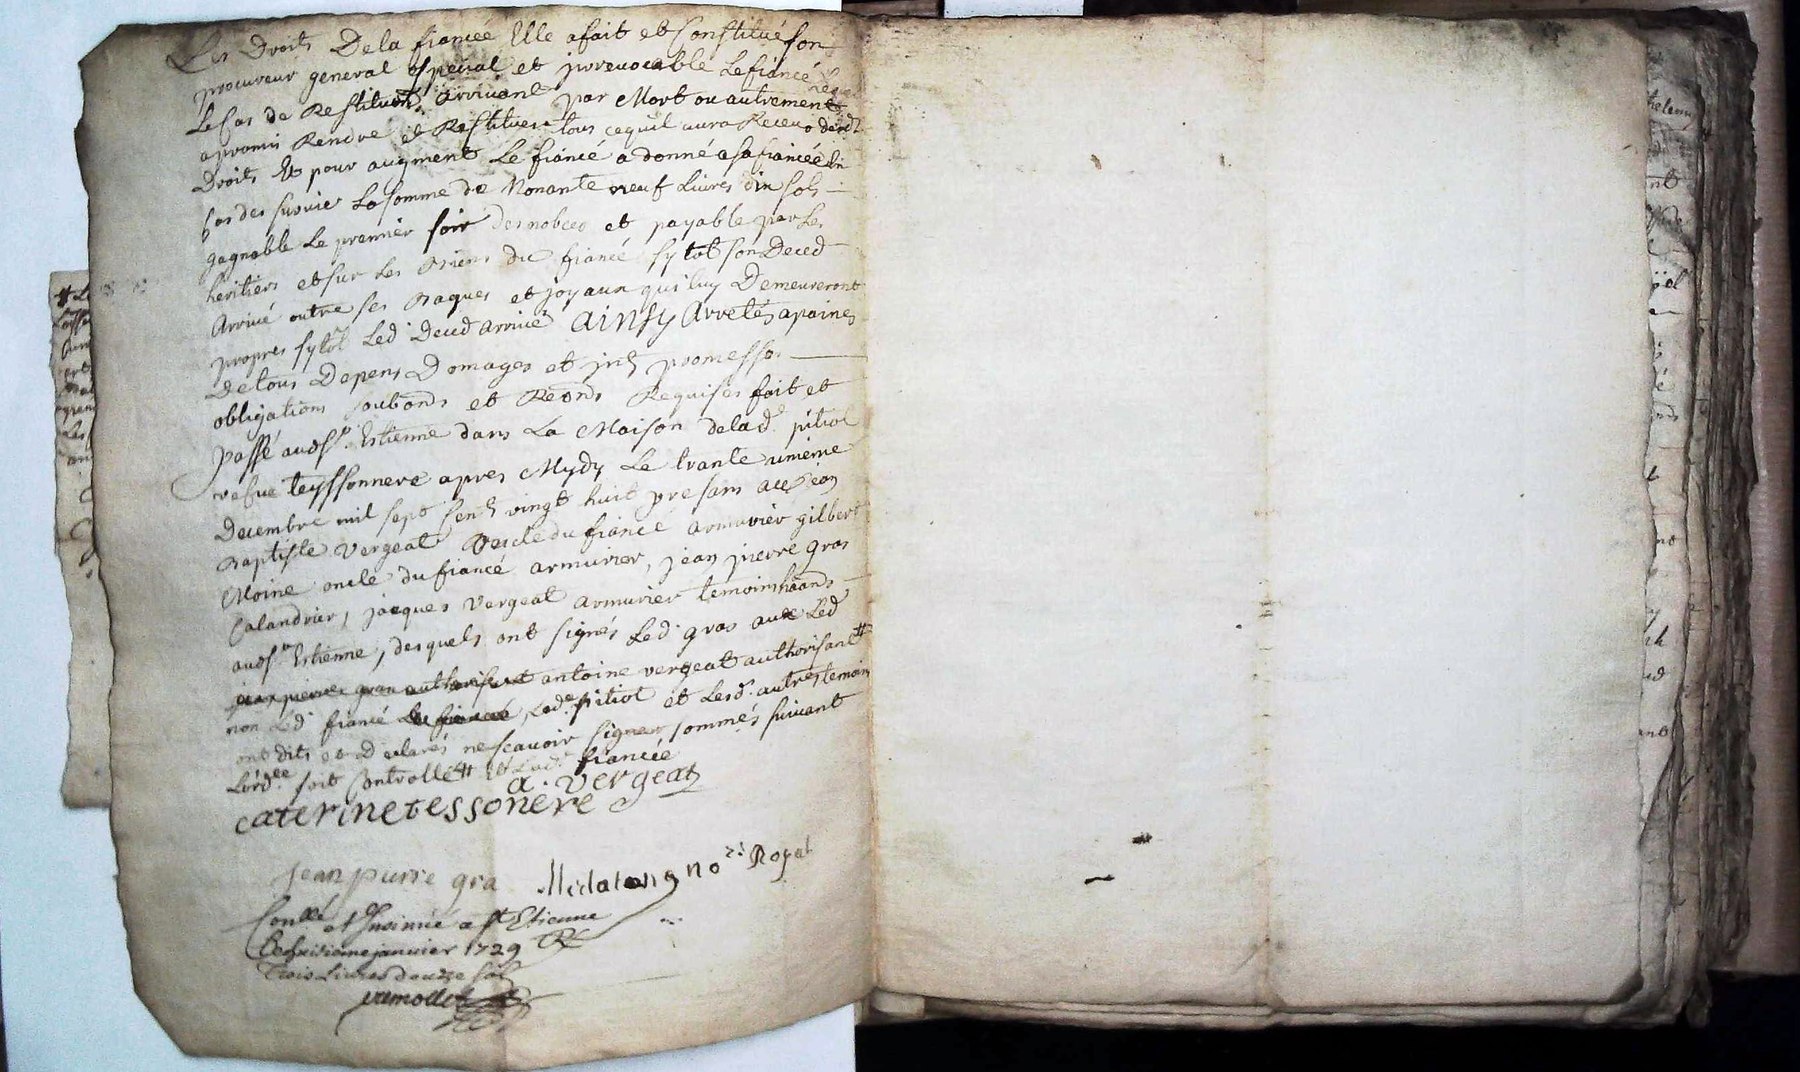 Les Droits De la fiancée Elle a fait et Constitué son
procureur general special et irrevocable Le fiancé
Le Cas de Restituon arrivant par Mort ou autrement
a promis Rendre et Restituer tous cequil aura Receu desd
Droits Et pour augment Le fiancé a donné a sa fiancée En
Cas de survie La somme de Nonante neuf Livres dix sols
gagnable Le premier soir des nobces et payable par Les
heritiers et sur Les Biens du fiancé sytot son Deced
Arrivé outre ses Bagues et joyaux qui luy Demeureront
propres sytot Led Deced arrivé Ainsy Arretés a paines
De tous Depens Domages et promesses
obligations soubons et Reons Requises fait et
passé aud st Estienne dans La Maison de lad pitiot
vefue teyssonnere apres Mydy Le trante unieme
Decembre mil sept Cent vingt huit presans
Baptiste Vergeat oncle du fiancé armurier gilbert
Moine oncle du fiancé armurier, jean pierre gras
Calandrier, jacques Vergeat armurier temoins
aud st Estienne, desquels ont signés Led gras avec Led
antoine vergeat authorisant #
non Led fiancé Lad pitiot et Lesd autres temoins
ont dits et Declarés ne scavoir signer sommés suivant
Lord soit Controllé # et Lad fiancée
a. vergeat
caterine tessonere
jean pierre gra
no re Royal
Conllé et Insinué a st Etienne
Le huitieme janvier 1729
Trois Livres douze sols